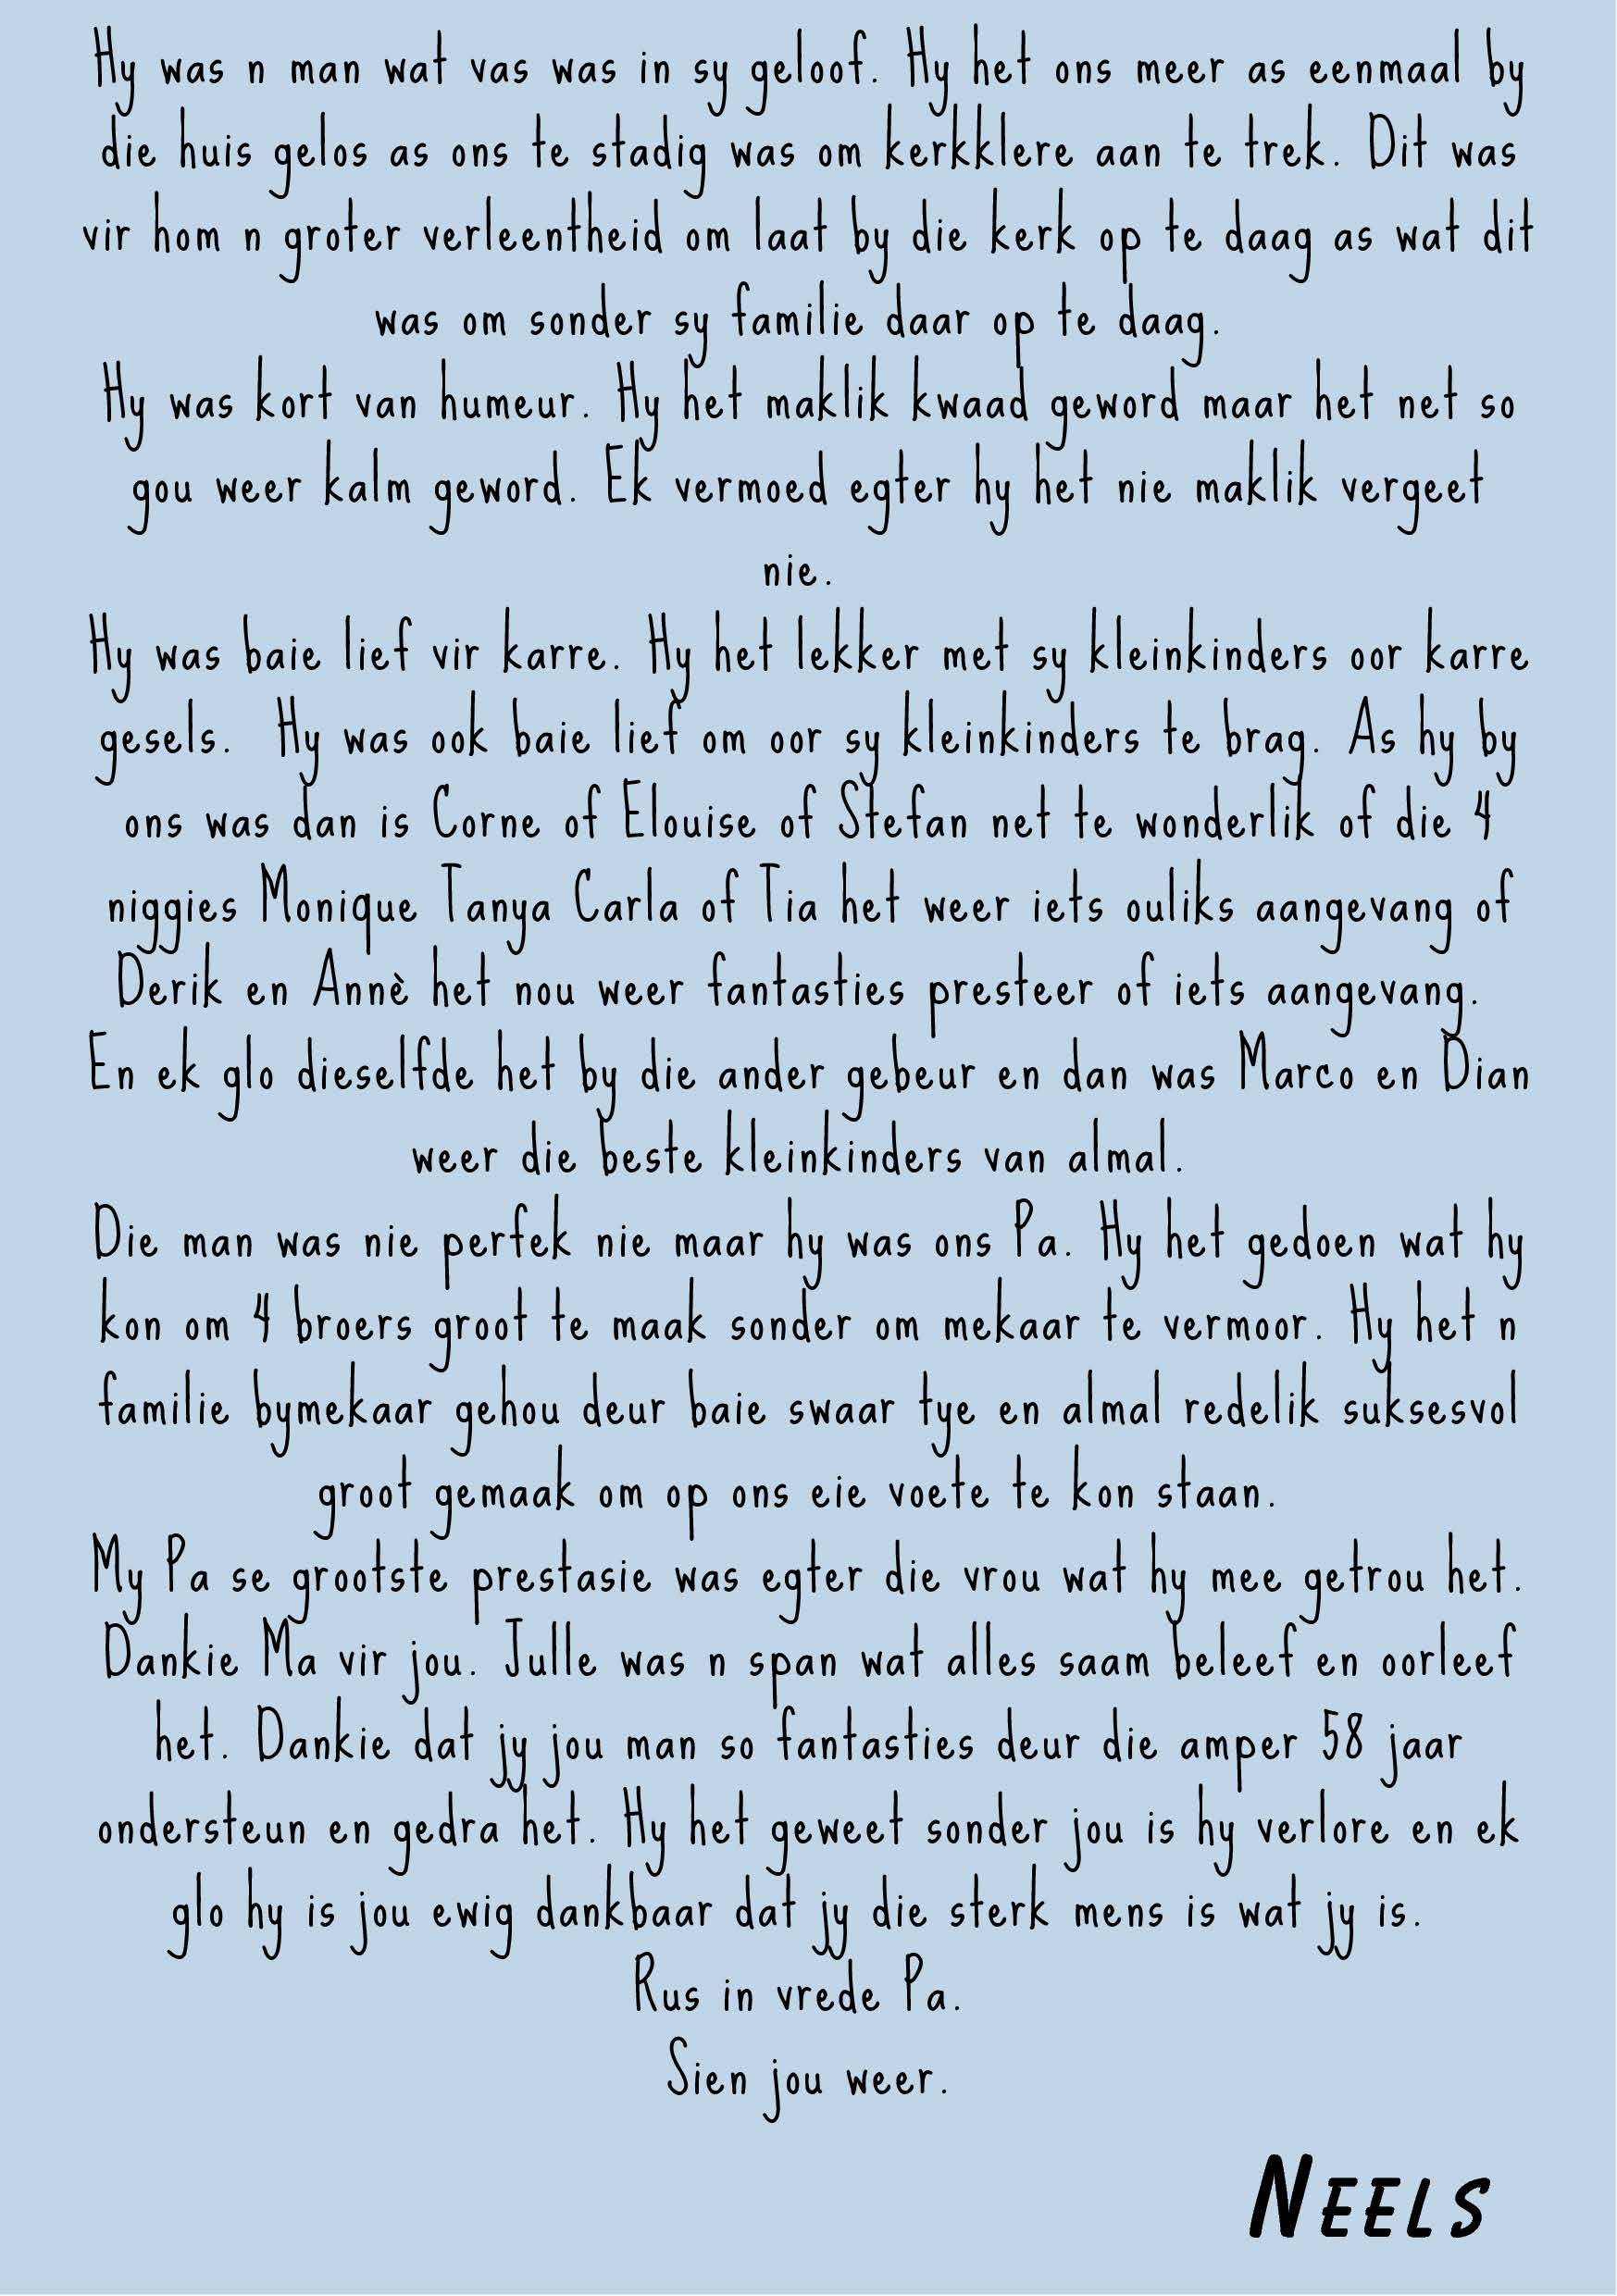 Hy was n man wat vas was in sy geloof. Hy het ons meer as eenmaal by
die huis gelos as ons te stadig was om kerkklere aan te trek. Dit was
vir hom n groter verleentheid om laat by die kerk op te daag as wat dit
was om sonder sy familie daar op te daag.
Hy was kort van humeur. Hy het maklik kwaad geword maar het net so
gou weer kalm geword. Ek vermoed egter hy het nie maklik vergeet
nie.
Hy was baie lief vir karre. Hy het lekker met sy kleinkinders oor karre
gesels. Hy was ook baie lief om oor sy kleinkinders te brag. As hy by
ons was dan is Corne of Elouise of Stefan net te wonderlik of die 4
niggies Monique Tanya Carla of Tia het weer iets ouliks aangevang of
Derik en Annè het nou weer fantasties presteer of iets aangevang.
En ek glo dieselfde het by die ander gebeur en dan was Marco en Dian
weer die beste kleinkinders van almal.
Die man was nie perfek nie maar hy was ons Pa. Hy het gedoen wat hy
kon om 4 broers groot te maak sonder om mekaar te vermoor. Hy het n
familie bymekaar gehou deur baie swaar tye en almal redelik suksesvol
groot gemaak om op ons eie voete te kon staan.
My Pa se grootste prestasie was egter die vrou wat hy mee getrou het.
Dankie Ma vir jou. Julle was n span wat alles saam beleef en oorleef
het. Dankie dat jy jou man so fantasties deur die amper 58 jaar
ondersteun en gedra het. Hy het geweet sonder jou is hy verlore en ek
glo hy is jou ewig dankbaar dat jy die sterk mens is wat jy is.
Rus in vrede Pa.
Sien jou weer.
NEELS